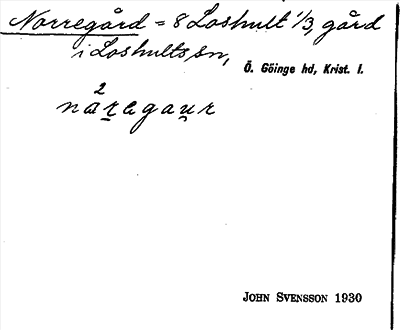 Norregård = 8 Loshult 1/3, gård
i Loshults sn,
Ö. Göinge hd, Krist. l.
2
naragaur
JOHN SVENSSON 1930